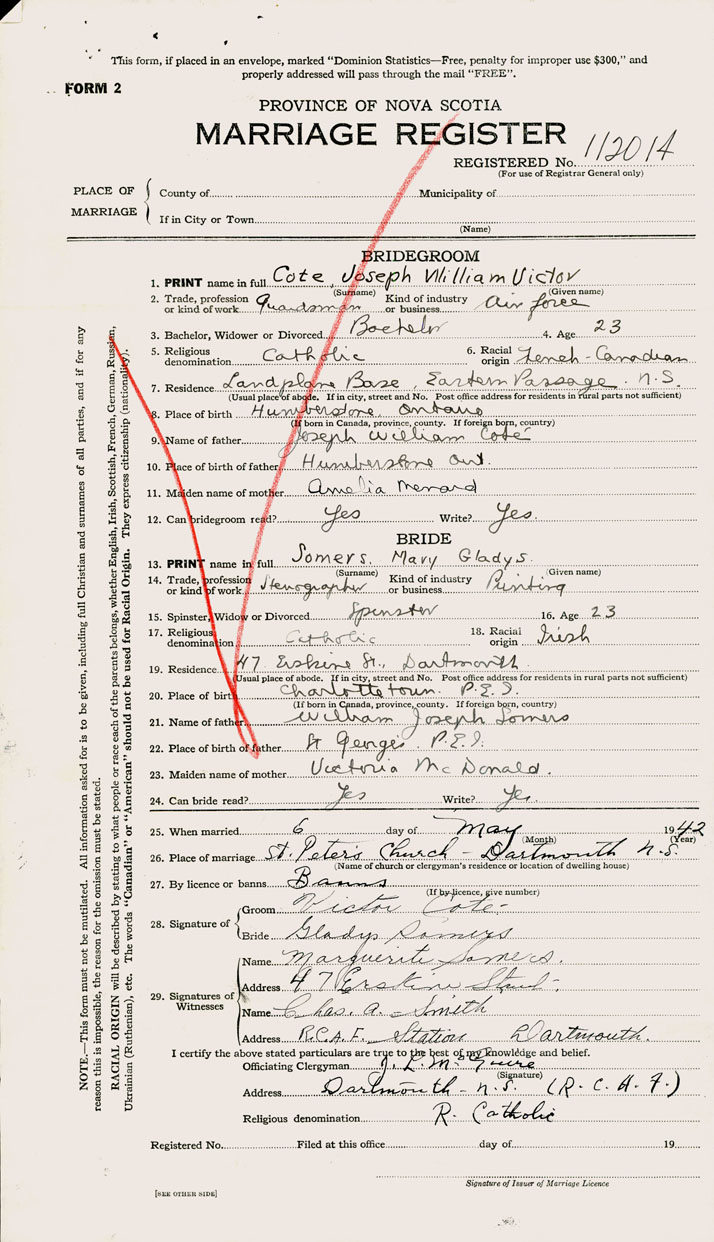 This form, if placed in an envelope, marked "Dominion Statistics—Free, penalty for improper use $300," and
properly addressed will pass through the mail "FREE".
FORM 2
PROVINCE OF NOVA SCOTIA
MARRIAGE REGISTER
REGISTERED No. 112014
(For use of Registrar General only)
PLACE OF MARRIAGE
County of Municipality of
If in City or Town
(Name)
BRIDEGROOM
1. PRINT name in full Cote, Joseph William Victor
(Surname) (Given name)
2. Trade, profession or kind of work Guardsman Kind of industry or business Air force
3. Bachelor, Widower or Divorced Bachelor 4. Age 23
5. Religious denomination Catholic 6. Racial origin French-Canadian
7. Residence Landplane Base, Eastern Passage, N.S.
(Usual place of abode. If in city, street and No. Post office address for residents in rural parts not sufficient)
8. Place of birth Humberstone, Ontario
(If born in Canada, province, county. If foreign born, country)
9. Name of father Joseph William Coté
10. Place of birth of father Humberstone Ont.
11. Maiden name of mother Amelia Menard
12. Can bridegroom read? Yes Write? Yes.
BRIDE
13. PRINT name in full Somers, Mary Gladys
(Surname) (Given name)
14. Trade, profession or kind of work Stenographer Kind of industry or business Printing
15. Spinster, Widow or Divorced Spinster 16. Age 23
17. Religious denomination Catholic 18. Racial origin Irish
19. Residence 47 Erskine St., Dartmouth
(Usual place of abode. If in city, street and No. Post office address for residents in rural parts not sufficient)
20. Place of birth Charlottetown. P.E.I.
(If born in Canada, province, county. If foreign born, country)
21. Name of father William Joseph Somers
22. Place of birth of father St Georges, P.E.I.
23. Maiden name of mother Victoria McDonald.
24. Can bride read? Yes Write? Yes.
25. When married 6 day of May 1942
(Month) (Year)
26. Place of marriage St. Peter's Church - Dartmouth N.S.
(Name of church or clergyman's residence or location of dwelling house)
27. By licence or banns Banns
(If by licence, give number)
28. Signature of
Groom Victor Cote
Bride Gladys Somers
29. Signatures of Witnesses
Name Marguerite Somers.
Address 47 Erskine Street
Name Chas. A. Smith
Address R.C.A.F. Station Dartmouth.
I certify the above stated particulars are true to the best of my knowledge and belief.
Officiating Clergyman J. L.
(Signature)
Address Dartmouth - N.S. (R.C.A.F.)
Religious denomination R. Catholic
Registered No. Filed at this office day of 19
Signature of Issuer of Marriage Licence
[SEE OTHER SIDE]
NOTE.—This form must not be mutilated. All information asked for is to be given, including full Christian and surnames of all parties, and if for any
reason this is impossible, the reason for the omission must be stated.
RACIAL ORIGIN will be described by stating to what people or race each of the parents belongs, whether English, Irish, Scottish, French, German, Russian,
Ukrainian (Ruthenian), etc. The words "Canadian" or "American" should not be used for Racial Origin. They express citizenship (nationality).